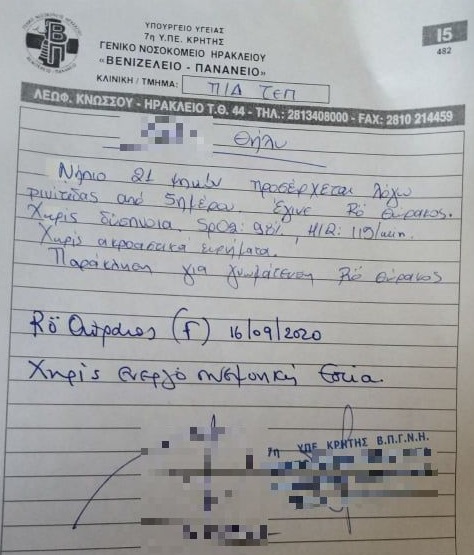 ΥΠΟΥΡΓΕΙΟ ΥΓΕΙΑΣ
7η Υ.ΠΕ. ΚΡΗΤΗΣ
ΓΕΝΙΚΟ ΝΟΣΟΚΟΜΕΙΟ ΗΡΑΚΛΕΙΟΥ
«ΒΕΝΙΖΕΛΕΙΟ - ΠΑΝΑΝΕΙΟ»
ΚΛΙΝΙΚΗ / ΤΜΗΜΑ: Π/Δ ΤΕΠ
Ι5
482
ΛΕΩΦ. ΚΝΩΣΣΟΥ - ΗΡΑΚΛΕΙΟ Τ.Θ. 44 - ΤΗΛ.: 2813408000 - FAX: 2810 214459
Θήλυ
Νήπιο 21 μηνών προσέρχεται λόγω
ρινίτιδας από 5ημέρου. Έγινε Rö θώρακος.
Χωρίς δύσπνοια, SpO2: 98%, H/R: 119/min.
Χωρίς ακροαστικά ευρήματα.
Παράκληση για γνωμάτευση Rö θώρακος
Rö Θώρακος (F) 16/09/2020
Χωρίς ενεργό πνευμονική Εστία.
7η ΥΠΕ ΚΡΗΤΗΣ Β.Π.Γ.Ν.Η.